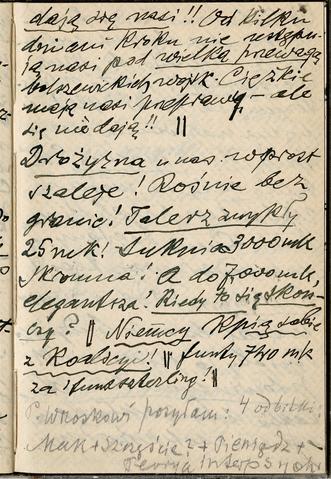 dają się nasi!! Od kilku
dni ani kroku nie ustępu-
ją nasi pod wielką przewagą
bolszewickich wojsk. Ciężkie
mają nasi przeprawy – ale
się nie dają!! ||
Drożyzna u nas wprost
szaleje! Rośnie bez
granic! Talerz zwykły
25 mk! Suknia 3000 mk
skromna! A do 7000 mk,
elegantsza! Kiedy to się skoń-
czy? || Niemcy kpią sobie
z Koalicyi! || funty 740 mk
za 1 funt szterling! ||
P. Włoskowi posyłam: 4 odbitki:
Mak + Szczęście? + Pieniądz +